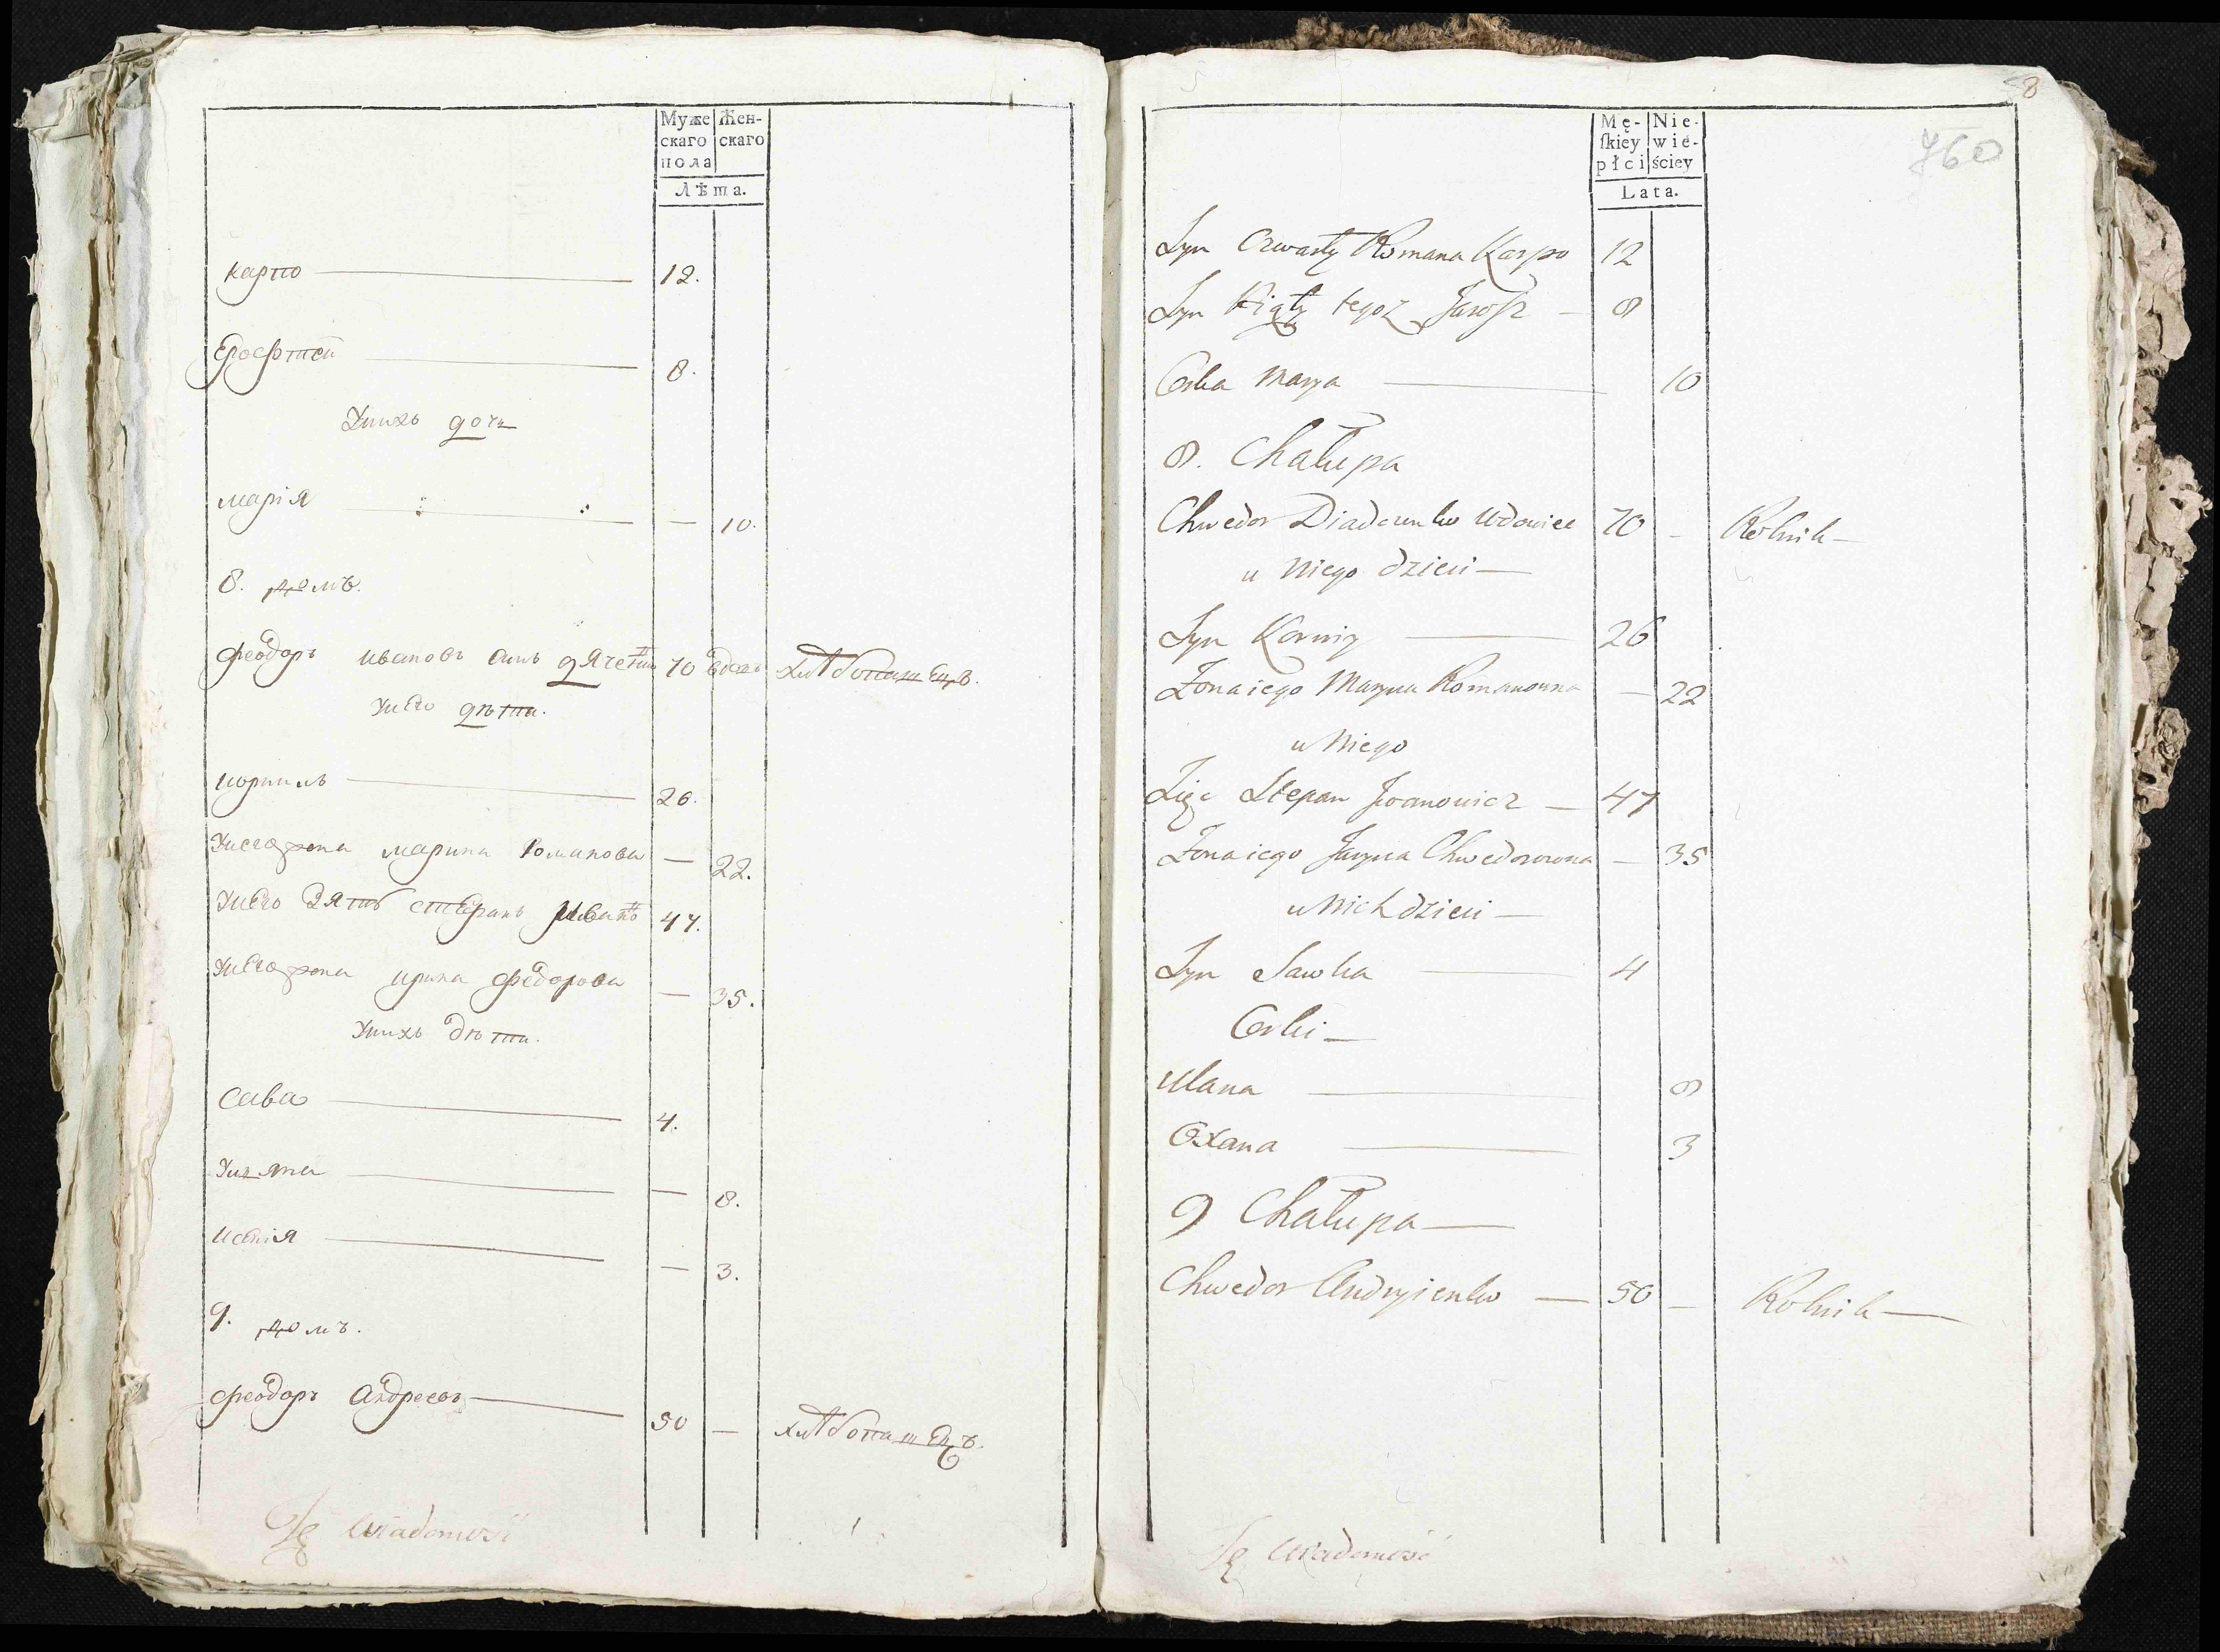 Муже
скаго
пола
Жен-
скаго
Лѣта.
карпо 12.
Ерофтей 8.
Унихъ дочь
марія — 10.
8. домъ.
феодоръ ивановъ сынъ дяченко 70 вдовъ хлѣбопашецъ.
Унего дѣти.
корнилъ 26.
Унего жена марина романова — 22.
Унего зять стефанъ ивановъ 47.
Унего жена ирина федорова — 35.
Унихъ дѣти.
сава 4.
Улята — 8.
ксенія — 3.
9. домъ.
феодоръ андреевъ 50 — хлѣбопашецъ.
Tę wiadomość
8
760
Mę-
ſkiey
płci
Nie-
wie-
ściey
Lata.
Syn Czwarty Romana Karpo 12
Syn Piąty tegoż Jarosz — 8
Corka Marya 10
8. Chałupa
Chwedor Diaczenko Wdowiec 70 — Rolnik —
u Niego dzieci —
Syn Korniy 26
Żona iego Maryna Romanowna — 22
u Niego
Zięć Stepan Jwanowicz — 47
Żona iego Jaryna Chwedorowna — 35
u Nich dzieci —
Syn Sawka 4
Corki —
Ulana 8
Oxana 3
9 Chałupa —
Chwedor Andryienko — 50 — Rolnik —
Tę wiadomość